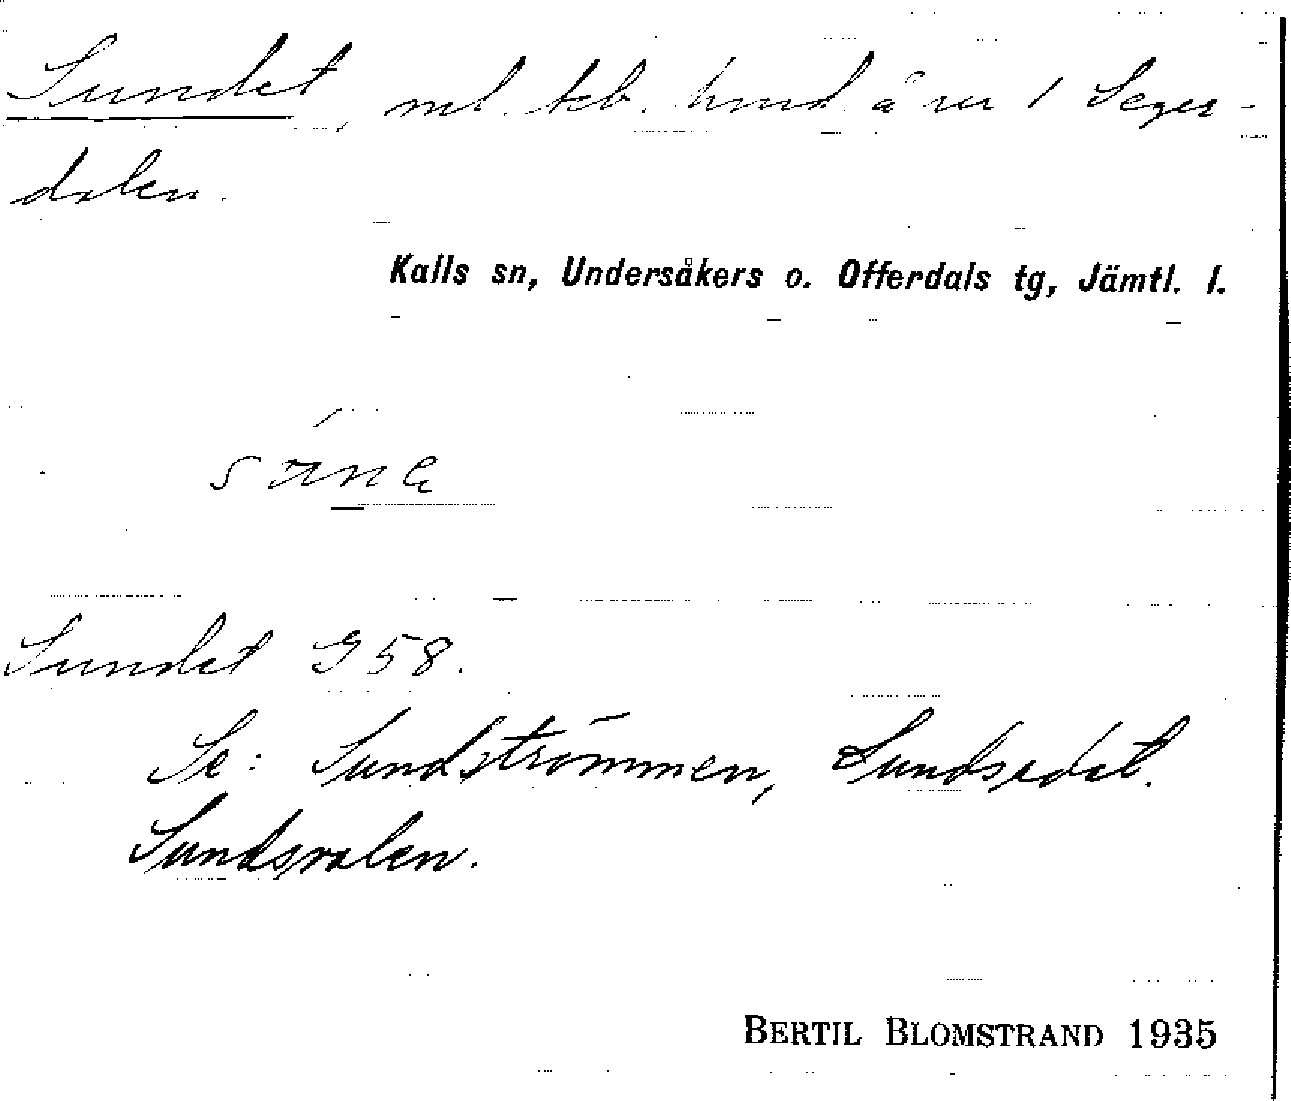 Sundet, ml. teb. hmd å nr 1 Seger-
dalen.
Kalls sn, Undersåkers o. Offerdals tg, Jämtl. l.
Sundet G 58.
Se: Sundströmmen, Sundsedet.
Sundsvalen.
BERTIL BLOMSTRAND 1935